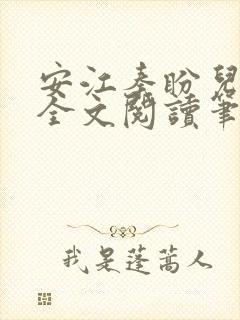 安江秦盼兒
全文閱讀筆
我是蓬蒿人